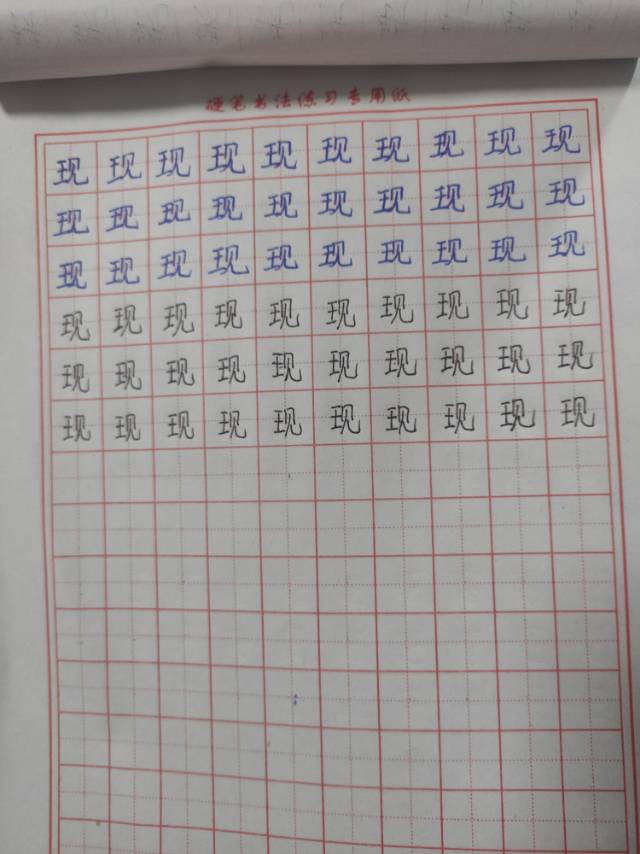 硬笔书法练习专用纸
现现现现现现现现现现
现现现现现现现现现现
现现现现现现现现现现
现现现现现现现现现现
现现现现现现现现现现
现现现现现现现现现现